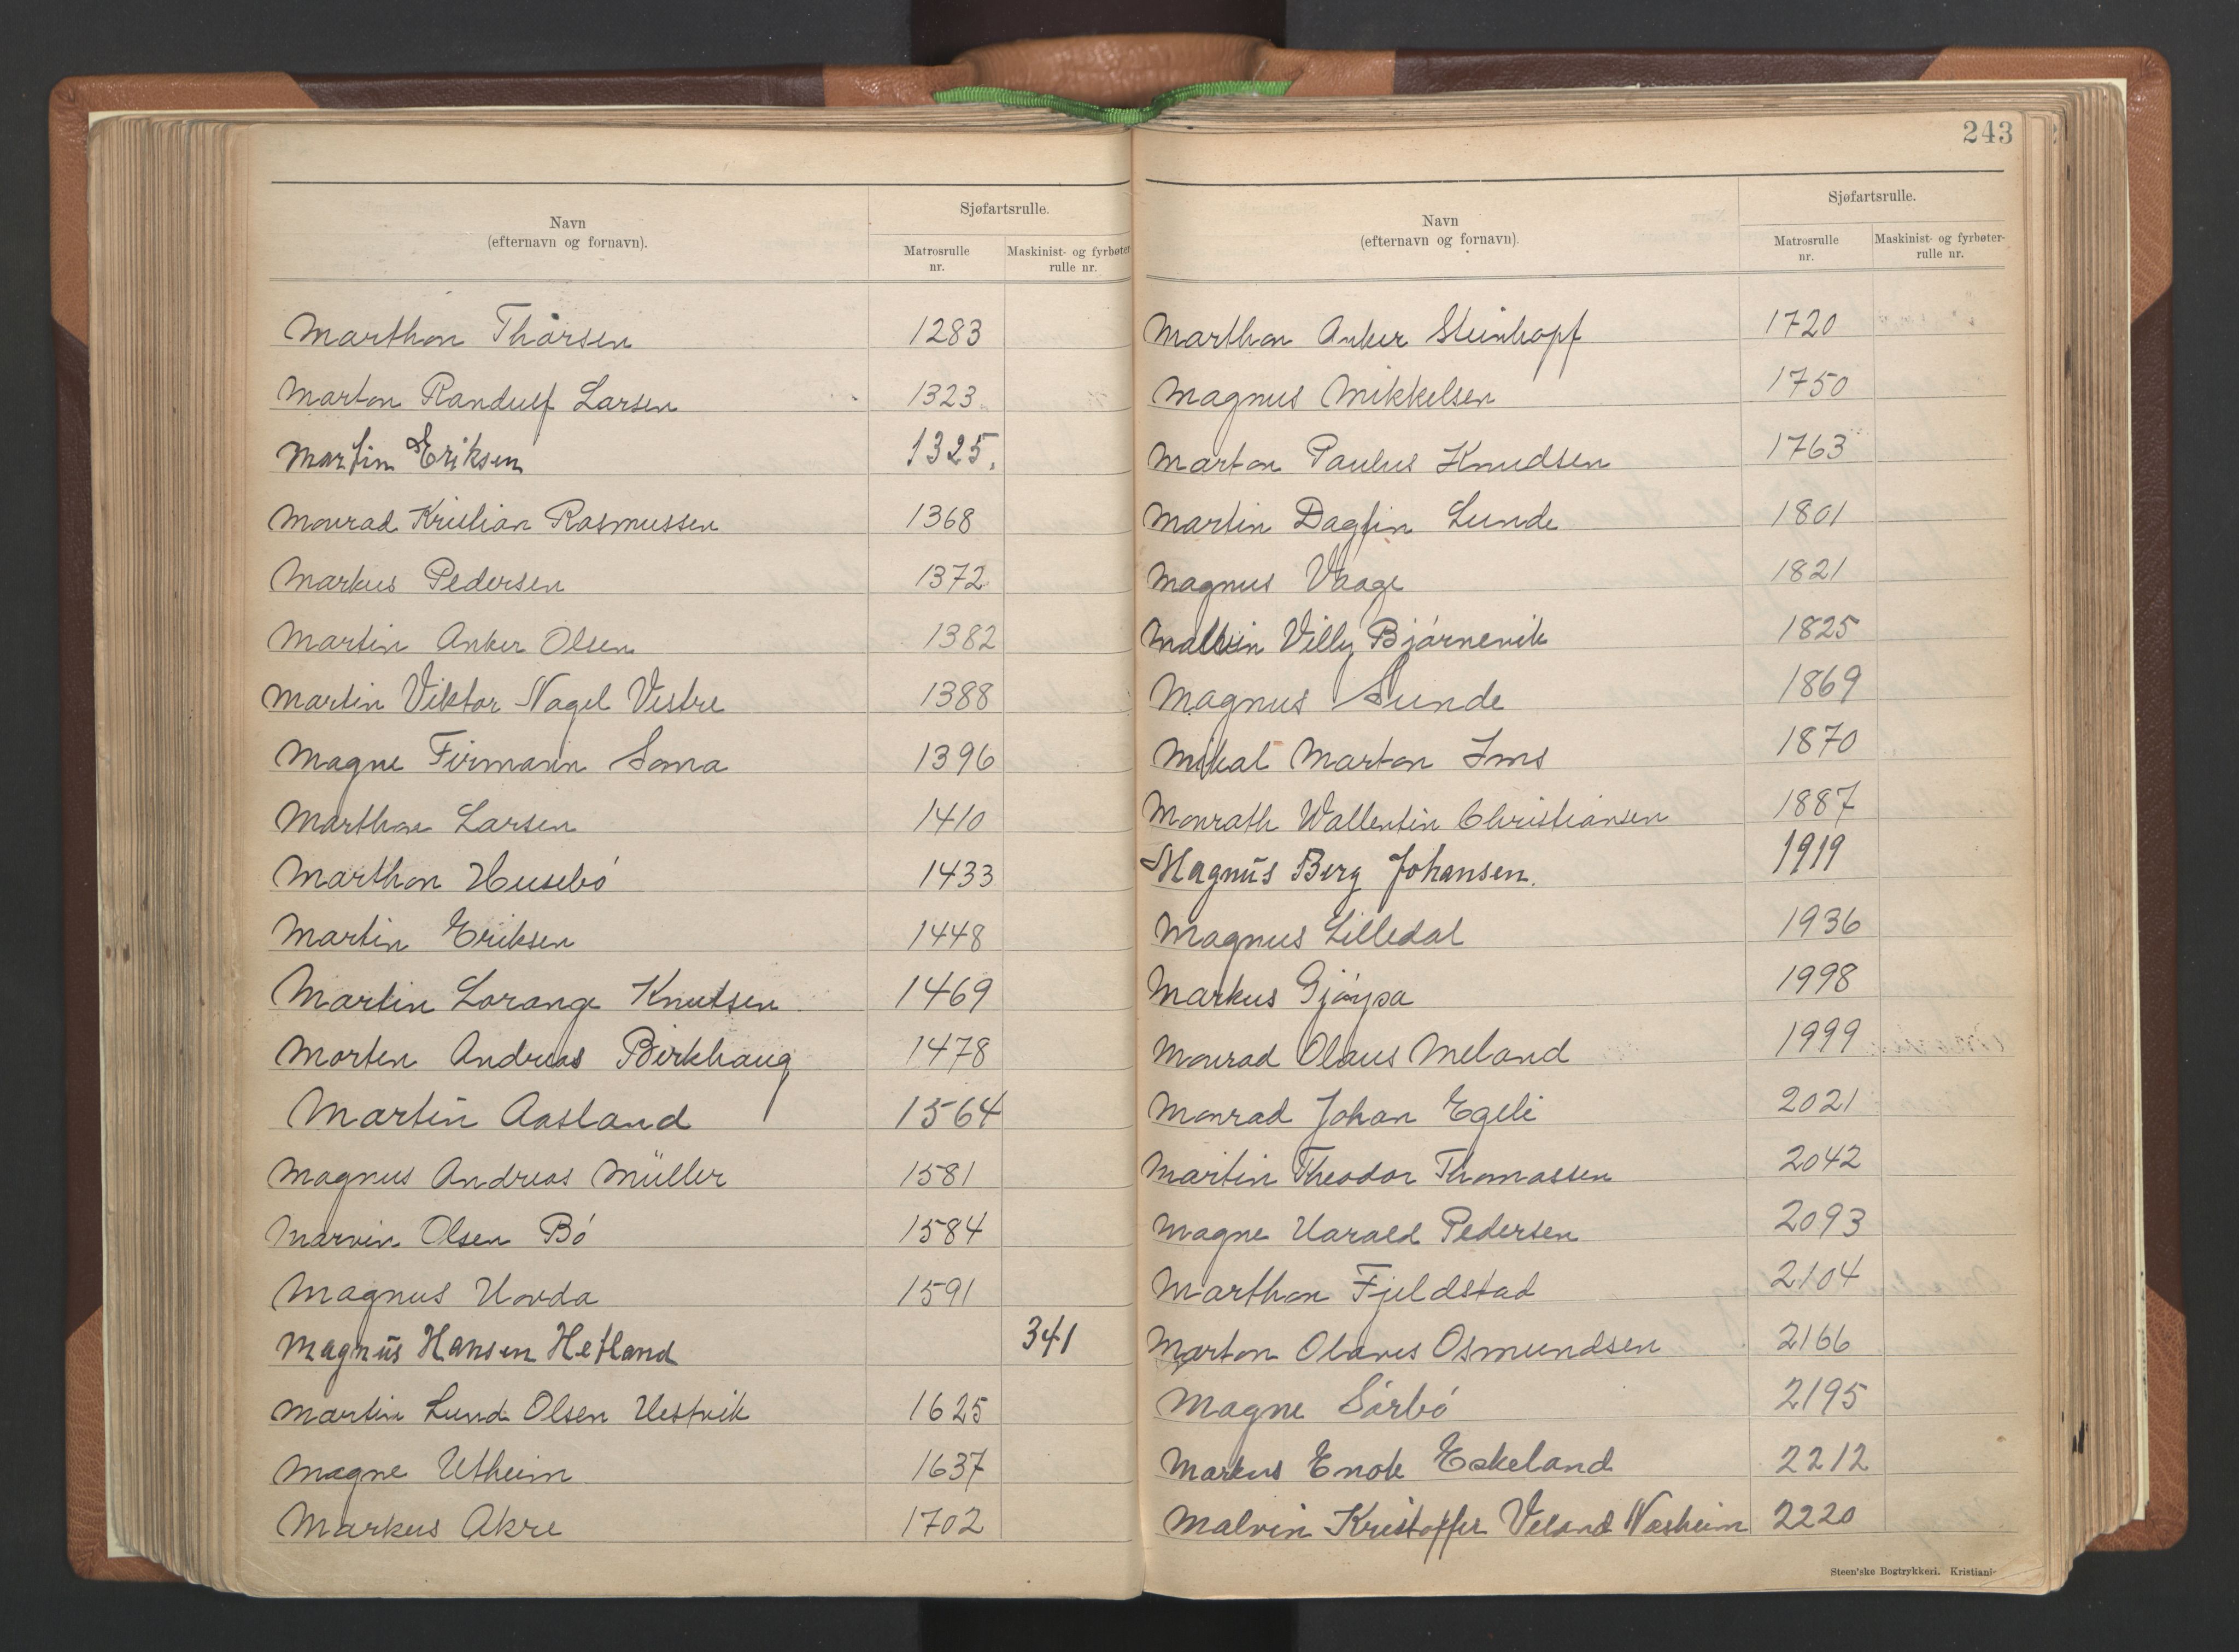 Navn
(efternavn og fornavn).
Sjøfartsrulle.
Matrosrulle nr.
Maskinist- og fyrbøter rulle nr.
Marthon Thorsen 1283
Marton Randulf Larsen 1323
Martin Eriksen 1325.
Monrad Kristian Rasmussen 1368
Markus Pedersen 1372
Martin Anker Olsen 1382
Martin Viktor Nagel Vestre 1388
Magne Firmann Soma 1396
Marthon Larsen 1410
Marthon Husebø 1433
Martin Eriksen 1448
Martin Lorange Knutsen 1469
Morten Andreas Birkhaug 1478
Martin Aasland 1564
Magnus Andreas Müller 1581
Marvin Olsen Bø 1584
Magnus Hovda 1591
Magnus Hansen Hetland 341
Martin Lund Olsen Vestvik 1625
Magne Utheim 1637
Markus Akre 1702
243
Navn
(efternavn og fornavn).
Sjøfartsrulle.
Matrosrulle nr.
Maskinist- og fyrbøter- rulle nr.
Marthon Anker Steinkopf 1720
Magnus Mikkelsen 1750
Marton Paulus Knudsen 1763
Martin Dagfin Lunde 1801
Magnus Vaage 1821
Villy Bjørnevik 1825
Magnus Sunde 1869
Mikal Marton Ims 1870
Monrath Wallentin Christiansen 1887
Magnus Berg Johansen. 1919
Magnus Lilledal 1936
Markus Gjøysa 1998
Monrad Olaus Meland 1999
Monrad Johan Egeli 2021
Martin Theodor Thomassen 2042
Magne Harald Pedersen 2093
Marthon Fjeldstad 2104
Marton Olaves Osmundsen 2166
Magne Sørbø 2195
Markus Enok Eskeland 2212
Malvin Kristoffer Veland Næsheim 2220
Steen'ske Bogtrykkeri. Kristiani